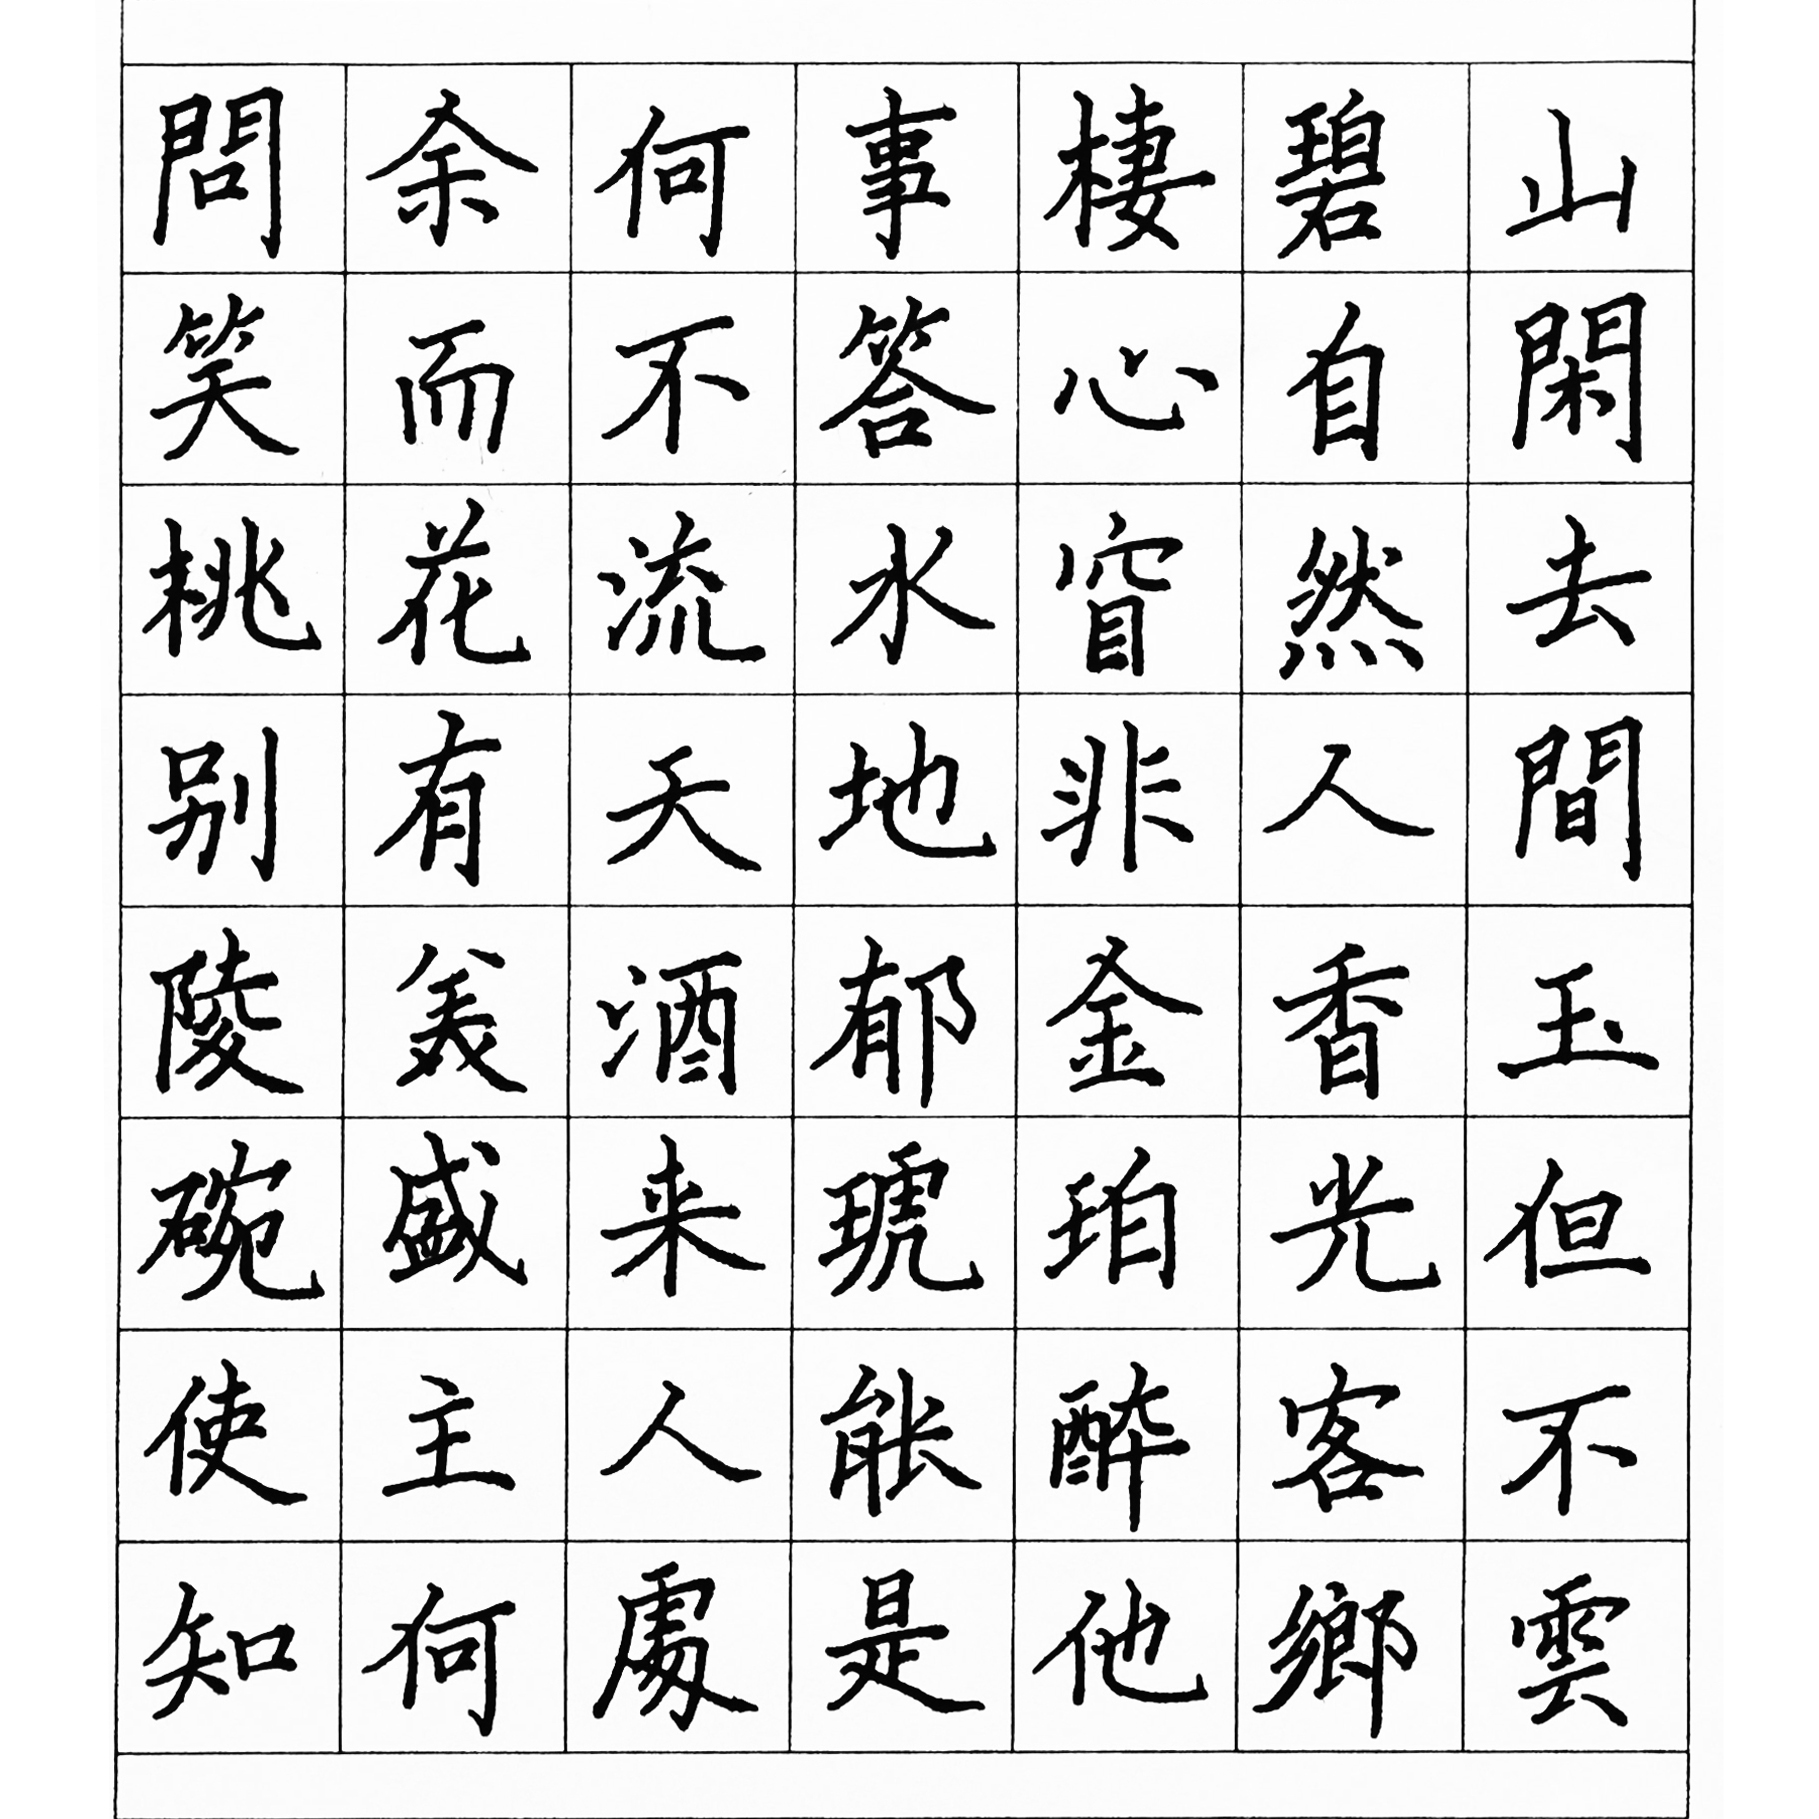 問余何事棲碧山
笑而不答心自閑
桃花流水窅然去
别有天地非人間
陵美酒郁金香玉
碗盛来琥珀光但
使主人能醉客不
知何處是他鄉雲